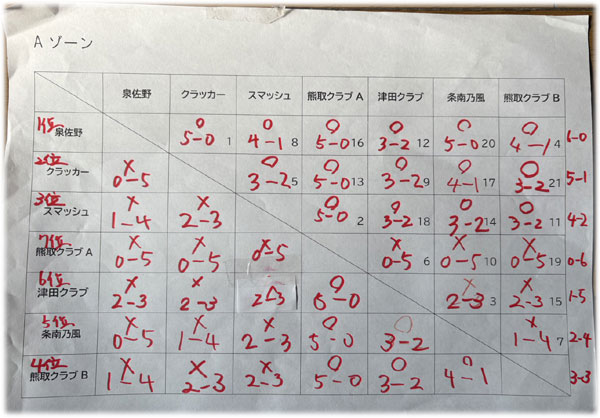 A ゾーン
泉佐野 クラッカー スマッシュ 熊取クラブ A 津田クラブ 条南乃風 熊取クラブ B
1位 泉佐野 ○ 5-0 1 ○ 4-1 8 ○ 5-0 16 ○ 3-2 12 ○ 5-0 20 ○ 4-1 4 6-0
2位 クラッカー × 0-5 ○ 3-2 5 ○ 5-0 13 ○ 3-2 9 ○ 4-1 17 ○ 3-2 21 5-1
3位 スマッシュ × 1-4 × 2-3 ○ 5-0 2 ○ 3-2 18 ○ 3-2 14 ○ 3-2 11 4-2
7位 熊取クラブ A × 0-5 × 0-5 × 0-5 × 0-5 6 × 0-5 10 × 0-5 19 0-6
6位 津田クラブ × 2-3 × 2-3 × 2-3 ○ 5-0 × 2-3 3 × 2-3 15 1-5
5位 条南乃風 × 0-5 × 1-4 × 2-3 ○ 5-0 ○ 3-2 × 1-4 7 2-4
4位 熊取クラブ B × 1-4 × 2-3 × 2-3 ○ 5-0 ○ 3-2 ○ 4-1 3-3